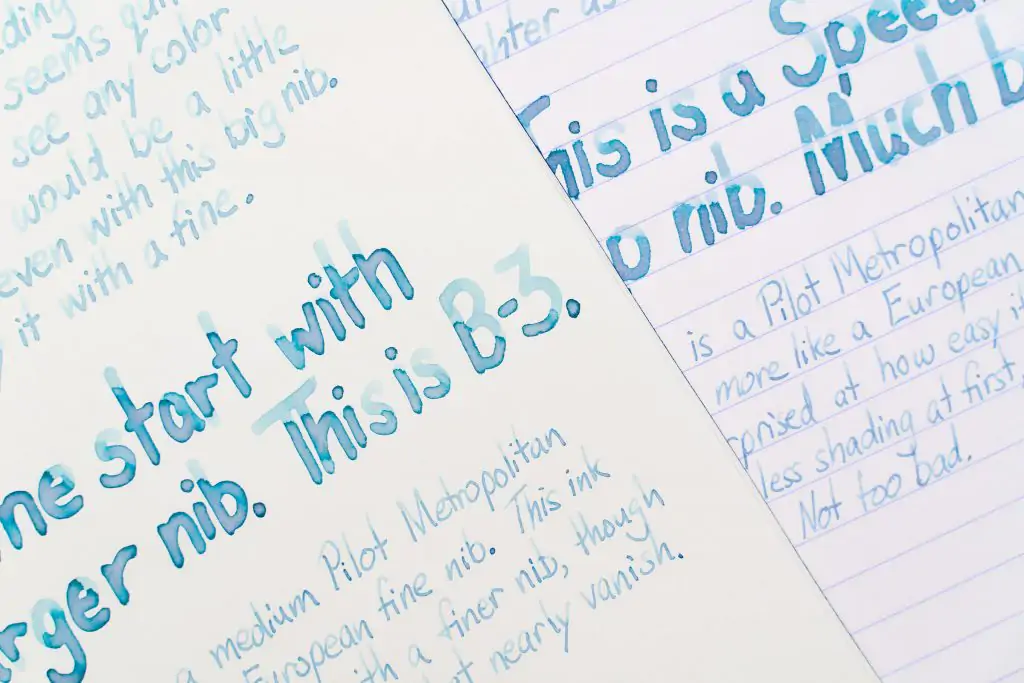 seems
see any color
would be a little
even with this big nib.
it with a fine.
start with
nib. This is B-3.
a medium Pilot Metropolitan
European fine nib. This ink
with a finer nib, though
nearly vanish.
This is a
nib. Much
is a Pilot Metropolitan
more like a European
at how easy
less shading at first,
Not too bad.